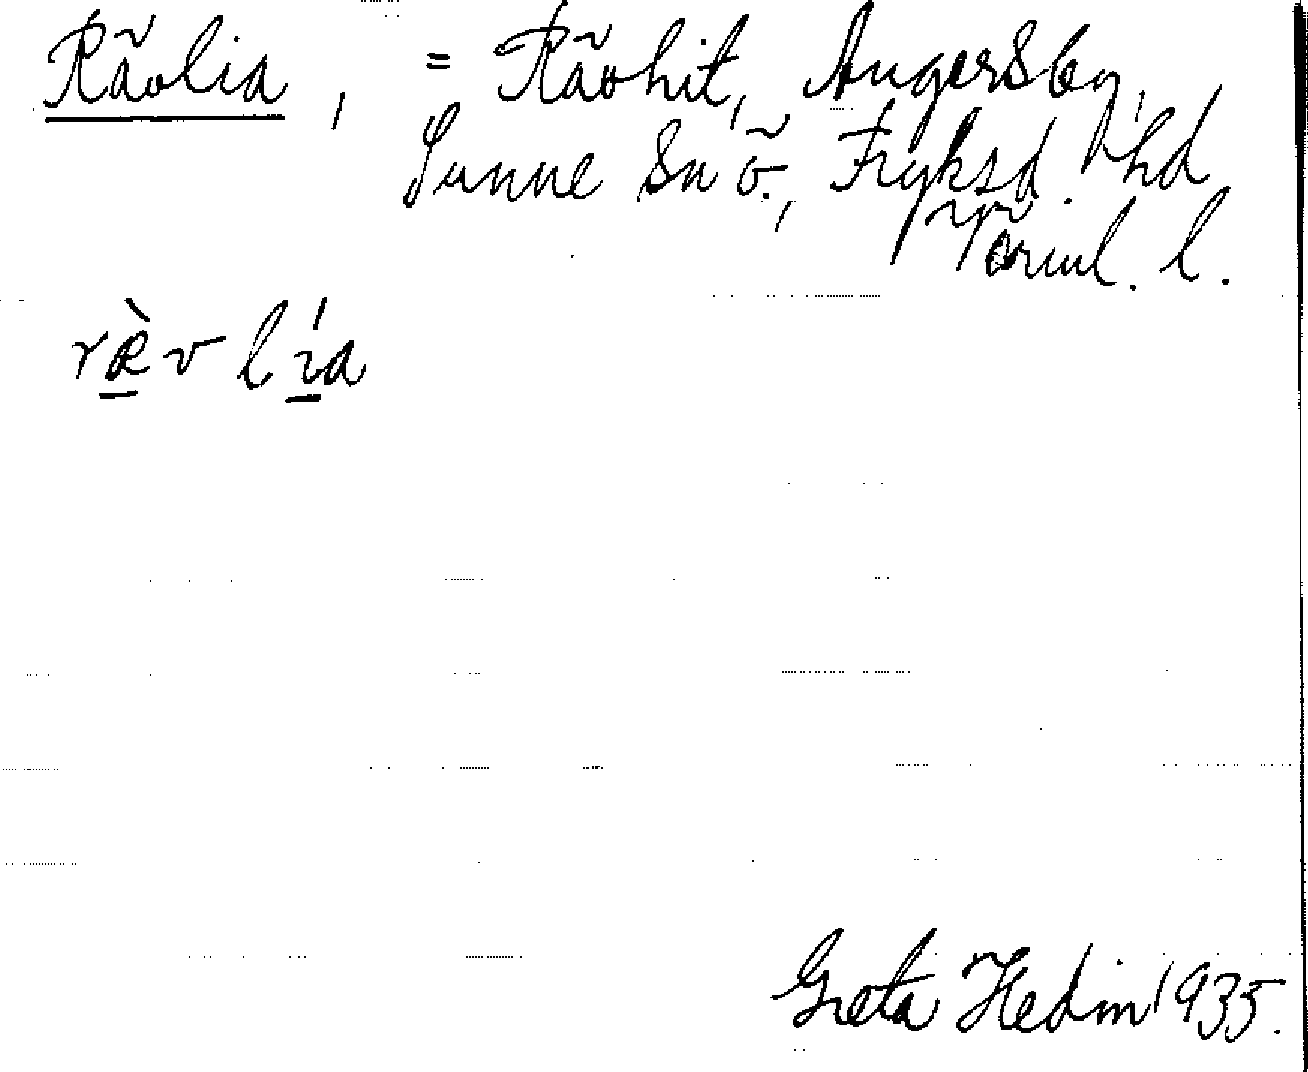 Rävlia, = Rävhit, Ängersby,
Sunne sn ö., Fryksd. hd
Värml. l.
rævlia
Greta Hedin 1935.